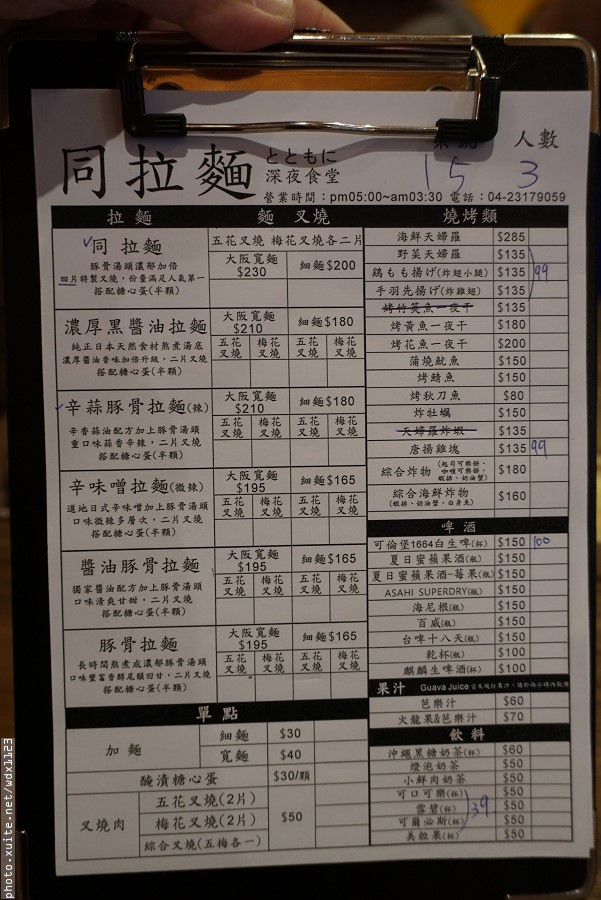 桌號 人數
15 3
同拉麵 とともに
深夜食堂
營業時間：pm05:00~am03:30 電話：04-23179059
拉麵 麵 叉燒
同拉麵
豚骨湯頭濃郁加倍
四片特製叉燒，份量滿足人氣第一
搭配糖心蛋(半顆)
五花叉燒 梅花叉燒各二片
大阪寬麵 $230 細麵 $200
濃厚黑醬油拉麵
純正日本天然食材熬煮湯底
濃厚醬油香味加倍升級，二片叉燒
搭配糖心蛋(半顆)
大阪寬麵 $210 細麵 $180
五花叉燒 梅花叉燒 五花叉燒 梅花叉燒
辛蒜豚骨拉麵(辣)
辛香蒜油配方加上豚骨湯頭
重口味蒜香辛辣，二片叉燒
搭配糖心蛋(半顆)
大阪寬麵 $210 細麵 $180
五花叉燒 梅花叉燒 五花叉燒 梅花叉燒
辛味噌拉麵(微辣)
道地日式辛味噌加上豚骨湯頭
口味微辣多層次，二片叉燒
搭配糖心蛋(半顆)
大阪寬麵 $195 細麵 $165
五花叉燒 梅花叉燒 五花叉燒 梅花叉燒
醬油豚骨拉麵
獨家醬油配方加上豚骨湯頭
口味清爽甘甜，二片叉燒
搭配糖心蛋(半顆)
大阪寬麵 $195 細麵 $165
五花叉燒 梅花叉燒 五花叉燒 梅花叉燒
豚骨拉麵
長時間熬煮成濃郁豚骨湯頭
口味豐富香醇尾韻回甘，二片叉燒
搭配糖心蛋(半顆)
大阪寬麵 $195 細麵 $165
五花叉燒 梅花叉燒 五花叉燒 梅花叉燒
單點
加麵 細麵 $30
寬麵 $40
醃漬糖心蛋 $30/顆
叉燒肉 五花叉燒(2片)
梅花叉燒(2片) $50
綜合叉燒(五梅各一)
燒烤類
海鮮天婦羅 $285
野菜天婦羅 $135
鶏もも揚げ(炸翅小腿) $135 99
手羽先揚げ(炸雞翅) $135
烤竹筴魚一夜干 $135
烤黃魚一夜干 $180
烤花魚一夜干 $200
蒲燒魷魚 $150
烤鯖魚 $150
烤秋刀魚 $80
炸牡蠣 $150
天婦羅炸蝦 $135
唐揚雞塊 $135 99
綜合炸物 $180
綜合海鮮炸物 $160
(蝦排、奶油蟹、白身魚)
啤酒
可倫堡1664白生啤(杯) $150 100
夏日蜜蘋果酒(瓶) $150
夏日蜜蘋果酒-莓果(瓶) $150
ASAHI SUPERDRY(瓶) $150
海尼根(瓶) $150
百威(瓶) $150
台啤十八天(瓶) $150
乾杯(杯) $100
麒麟生啤酒(杯) $100
果汁 Guava Juice
芭樂汁 $60
火龍果&芭樂汁 $70
飲料
沖繩黑糖奶茶(杯) $60
燈泡奶茶 $50
小鮮肉奶茶 $50
可口可樂(杯) $50
雪碧(杯) $50 39
可爾必斯(杯) $50
美粒果(杯) $50
photo.xuite.net/wdx1123